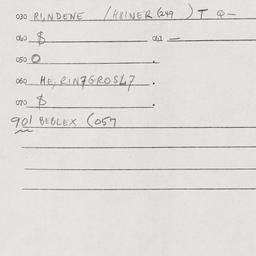 030 RINDENE /HRINER (249 ) T Q–
040 $ 041 –
050 O .
060 HE, RIN7GROSL7 .
070 $ .
901 BEBLEX (057